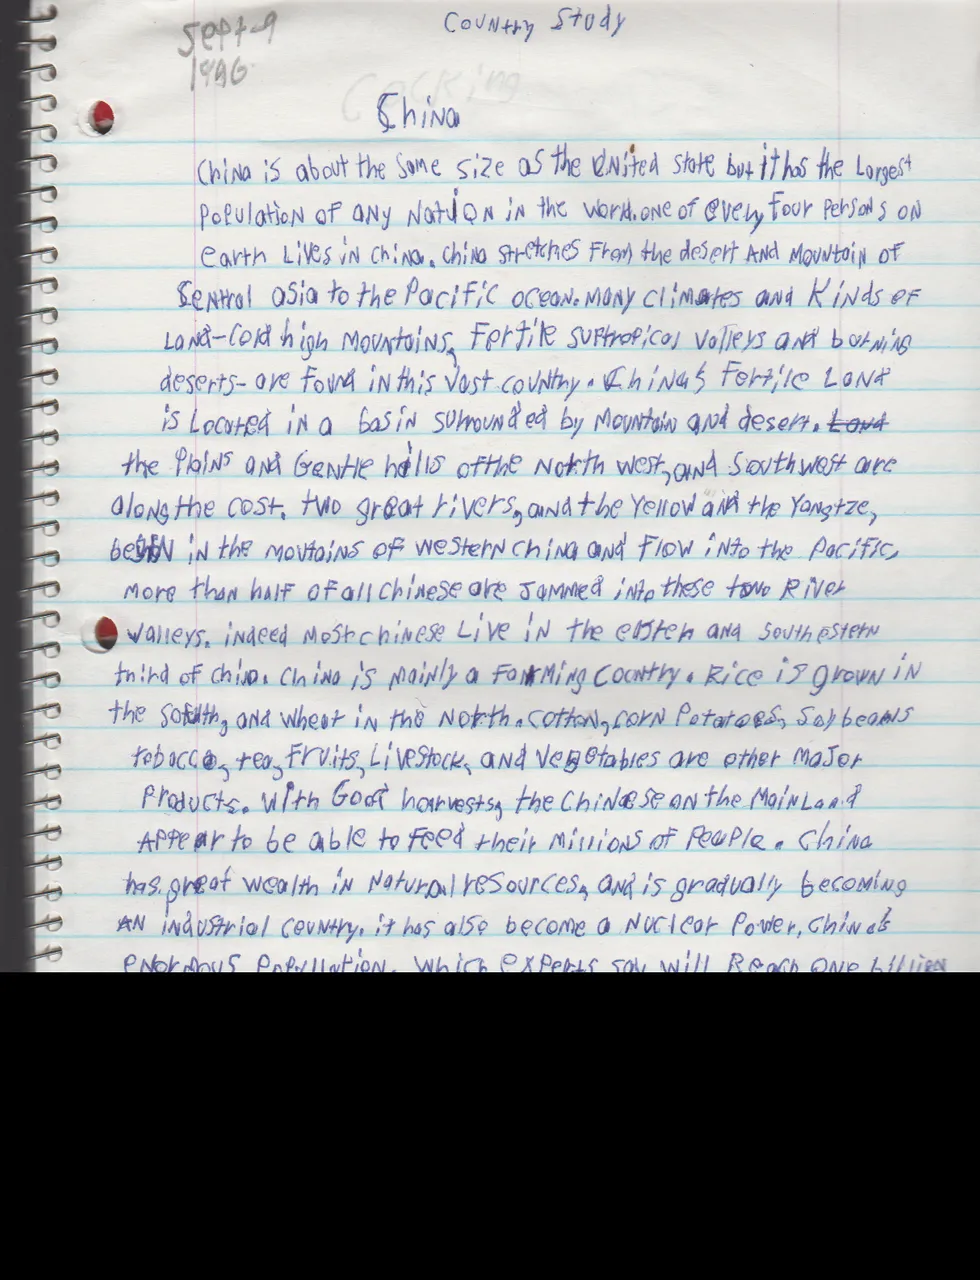 Country Study
Sept-9
1996
Cocking
China
China is about the same size as the United State but it has the Largest
Population of any Nation in the world. one of every four Persons on
earth Lives in China. China stretches From the desert And Mountain of
Central asia to the Pacific ocean. Many climates and Kinds of
Land-Cold high Mountains, Fertile suptropical Valleys and burning
deserts- are Found in this Vast country. China's Fertile Land
is Located in a basin surrounded by Mountain and desert. Land
the Plains and Gentle hills of the North west, and Southwest are
along the cost. two great rivers, and the Yellow and the Yangtze,
begin in the moutains of western China and Flow into the Pacific,
more than half of all Chinese are Jammed into these two River
Valleys. indeed Most chinese Live in the eastern and southestern
third of China. China is Mainly a Farming Country. Rice is grown in
the South, and wheat in the North. cotton, corn Potatoes, Soybeans
tobacco, tea, Fruits, LiveStock, and Vegetables are other Major
Products. With Good harvests, the Chinese on the MainLand
Appear to be able to Feed their Millions of People. China
has great wealth in Natural resources, and is gradually becoming
AN industrial country. it has also become a Nuclear Power, China's
enormous Population, which experts say will Reach one billion